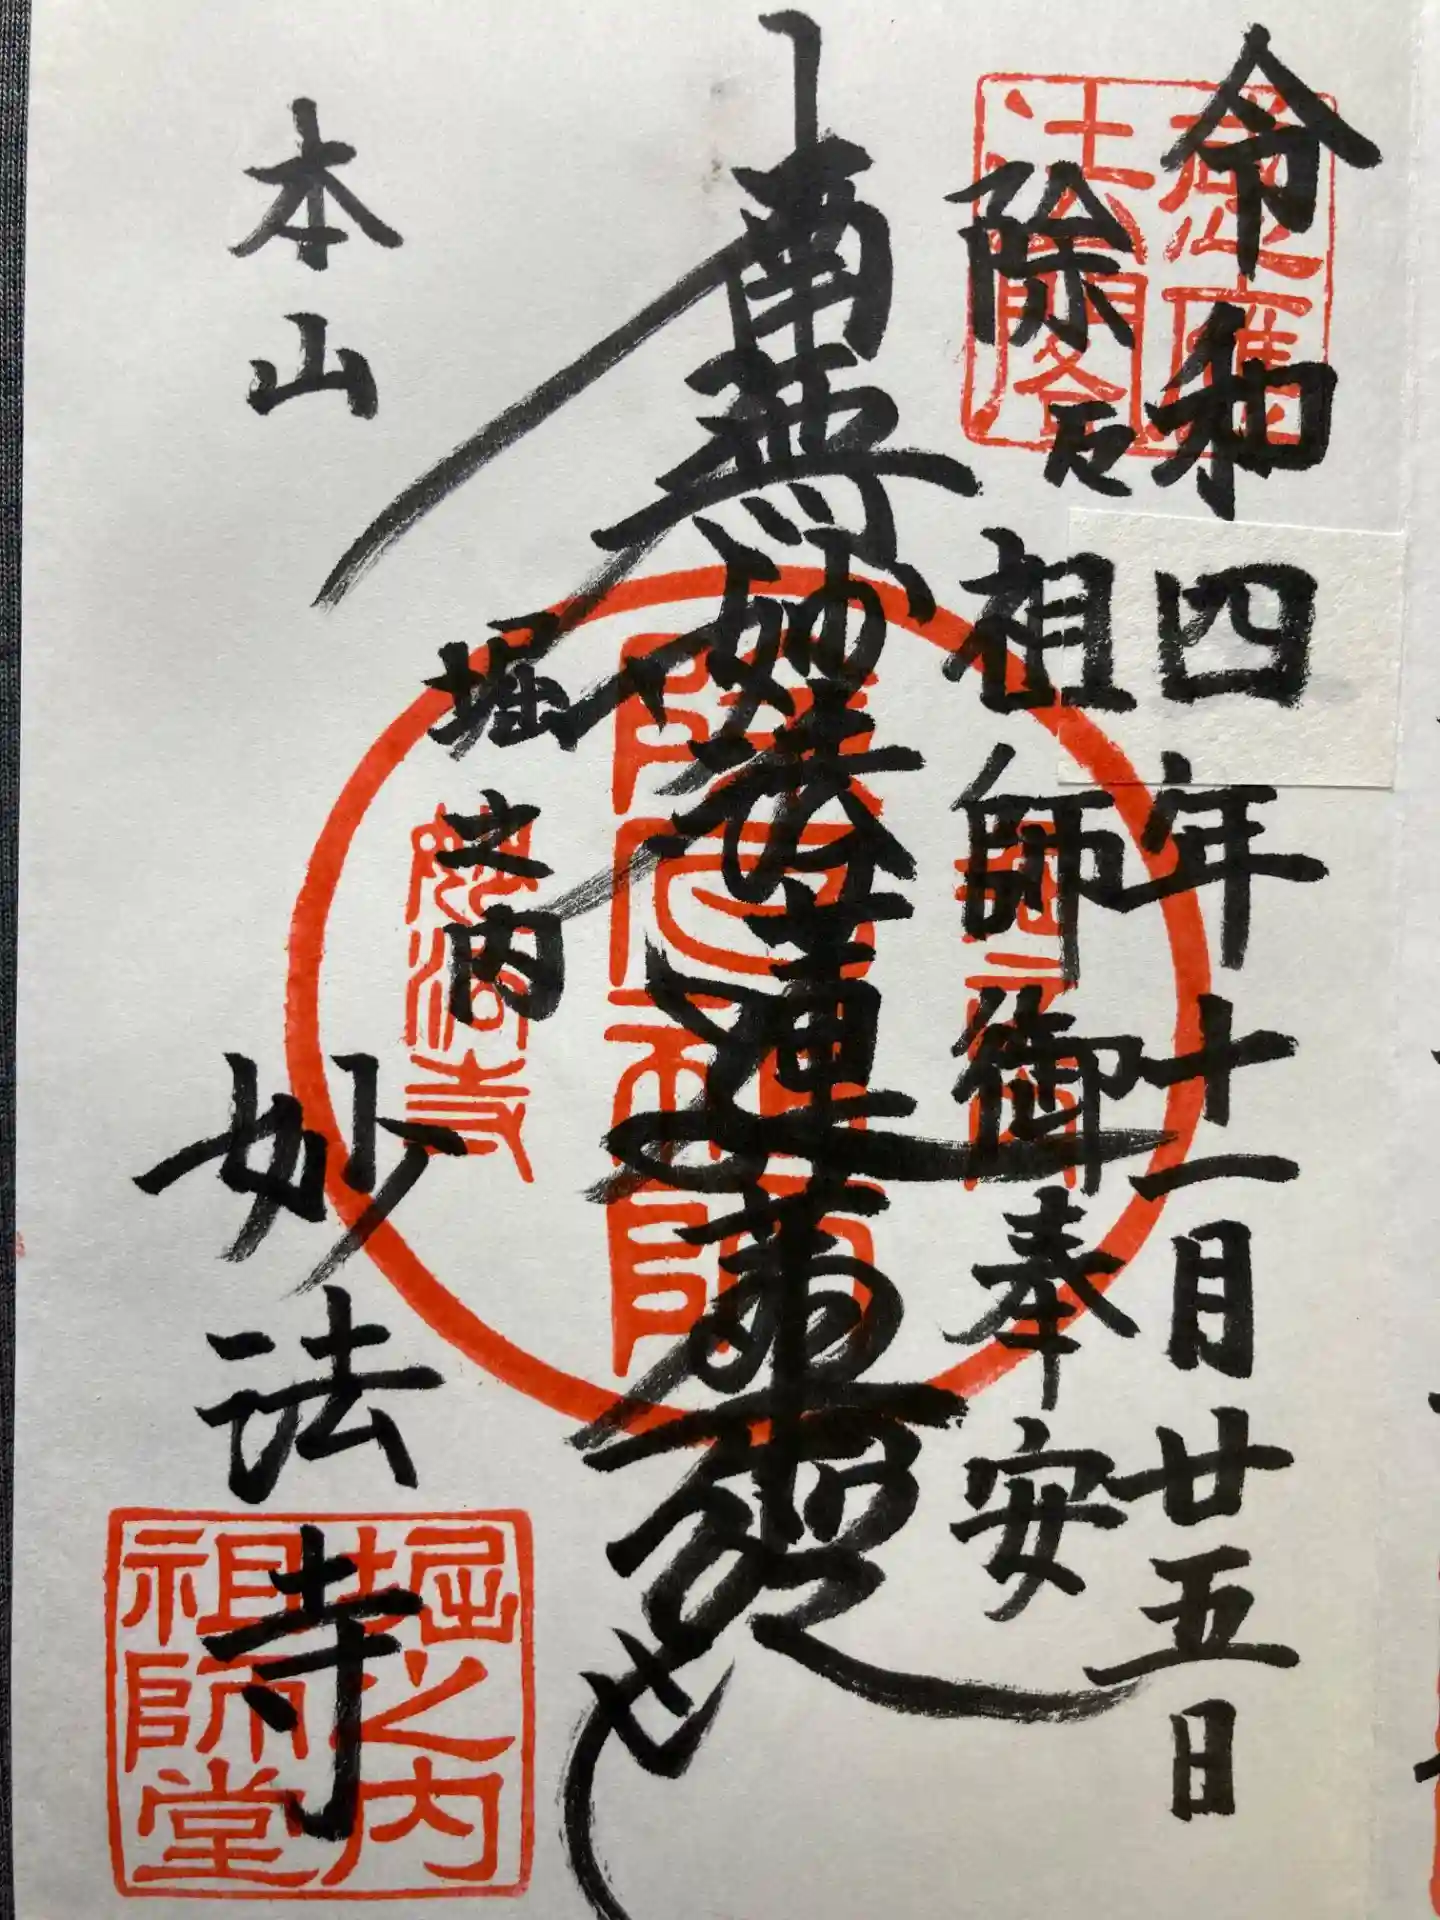 令和四年十一月廿五日
除厄祖師御奉安
南無妙法蓮華経
堀之内
本山
妙法寺
感應
法閣
除厄祖師
妙法寺
堀之内
祖師堂